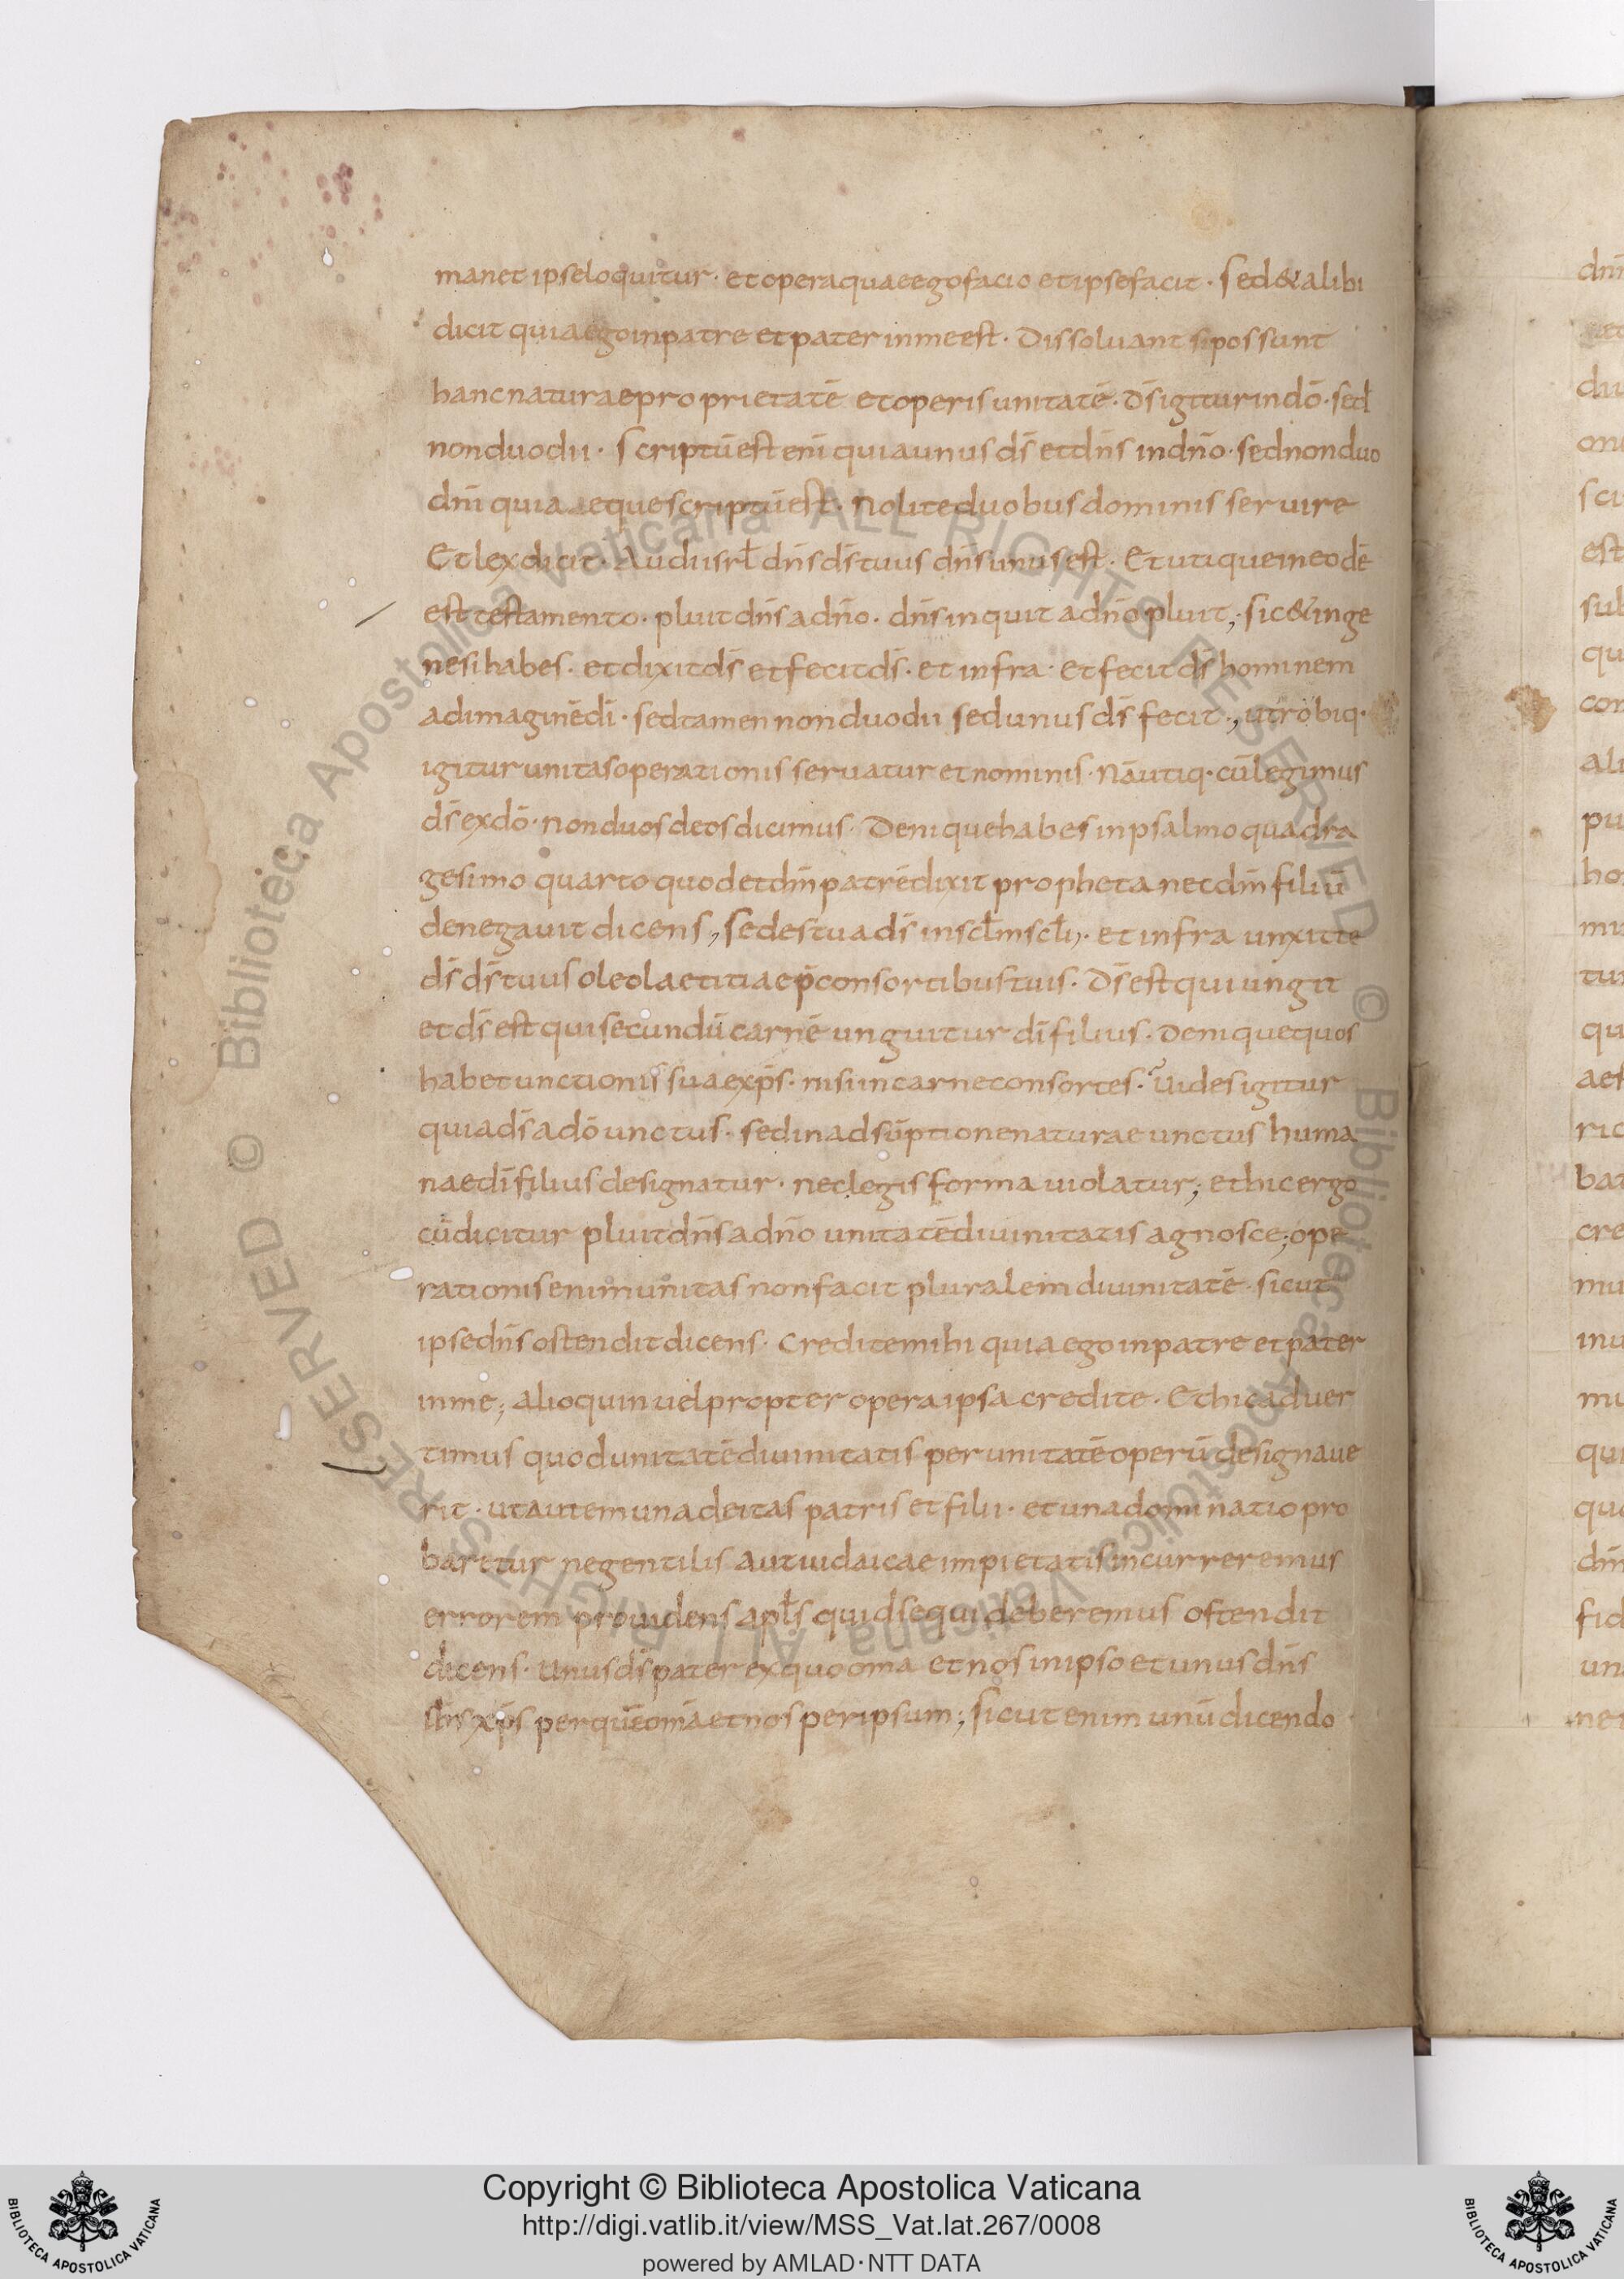 manet ipse loquitur · et opera quae ego facio et ipse facit · Sed & alibi
dicit quia ego in patre et pater in me est · Dissoluant si possunt
hanc naturae proprietatē et operis unitatē · D̄s igitur in dō · sed
non duo dii · Scriptū est enī quia unus d̄s et dn̄s in dn̄o · sed non duo
dn̄i quia aeque scriptū est · Nolite duobus dominis seruire
Et lex dicit · Audi isrl̄ dn̄s d̄s tuus dn̄s unus est · Et utique in eodē
est testamento · pluit dn̄s a dn̄o · dn̄s inquit a dn̄o pluit ; sic & in ge
nesi habes · et dixit d̄s et fecit d̄s · et infra · et fecit d̄s hominem
ad imaginē dī · sed tamen non duo dii sed unus d̄s fecit ., utrobiq·
igitur unitas operationis seruatur et nominis · Nā utiq· cū legimus
d̄s ex dō · non duos deos dicimus · Denique habes in psalmo quadra
gesimo quarto quod et dm̄ patrē dixit propheta nec dm̄ filiū
denegauit dicens , Sedes tua d̄s in scl̄m scl̄i · et infra unxit te
d̄s d̄s tuus oleo laetitiae p̄ consortibus tuis · D̄s est qui ungit
et d̄s est qui secundū carnē unguitur dī filius · Denique quos
habet unctionis suae xp̄s · nisi in carne consortes · Uides igitur
quia d̄s a dō unctus · sed in adsūptione naturae unctus huma
nae dī filius designatur · nec legis forma uiolatur ; et hic ergo
cū dicitur pluit dn̄s a dn̄o unitatē diuinitatis agnosce ; ope
rationis enim unitas non facit pluralem diuinitatē · sicut
ipse dn̄s ostendit dicens · Credite mihi quia ego in patre et pater
in me ; alioquin uel propter opera ipsa credite · Et hic aduer
timus quod unitatē diuinitatis per unitatē operū designaue
rit · ut autem una deitas patris et filii · et una dominatio pro
baretur ne gentilis aut iudaicae impietatis incurreremus
errorem prouidens apl̄s quid sequi deberemus ostendit
dicens · Unus d̄s pater ex quo om̄a et nos in ipso et unus dn̄s
ih̄s xp̄s per quē om̄a et nos per ipsum ; sicut enim unū dicendo
Copyright © Biblioteca Apostolica Vaticana
http://digi.vatlib.it/view/MSS_Vat.lat.267/0008
powered by AMLAD · NTT DATA